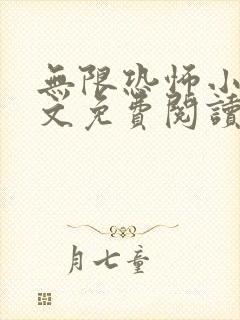 無限恐怖小
文免費閱讀
月七童